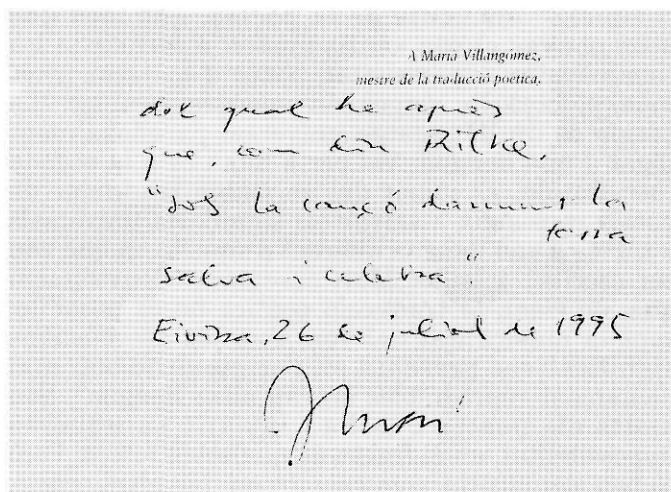 A Marià Villangómez,
mestre de la traducció poètica,
del qual he après
que, com diu Rilke,
"sols la cançó damunt la
terra
salva i celebra".
Eivissa, 26 de juliol de 1995